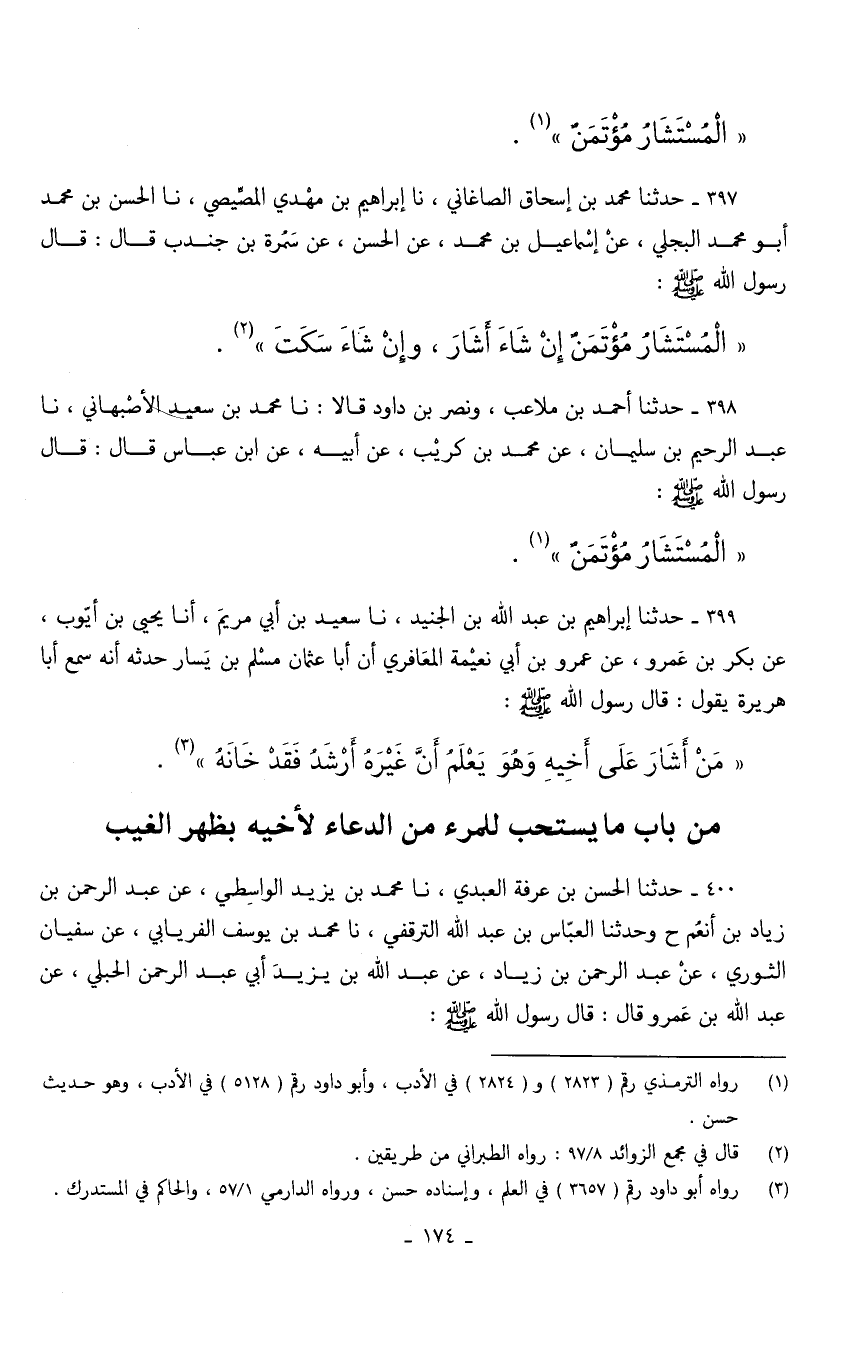 « الْمُسْتَشَارُ مُؤْتَمَنٌ »(١) .
٣٩٧ ـ حدثنا محمد بن إسحاق الصاغاني ، نا إبراهيم بن مهْدي المصِّيصي ، نـا الحسن بن محمـد
أبـو محمـد البجلي ، عنْ إسْماعيـل بن محمـد ، عن الحسن ، عن سَمُرة بن جنـدب قـال : قـال
رسول الله ﷺ :
« الْمُسْتَشَارُ مُؤْتَمَنٌ إِنْ شَاءَ أَشَارَ ، وإِنْ شَاءَ سَكَتَ »(٢) .
٣٩٨ ـ حدثنا أحمـد بن ملاعب ، ونصر بن داود قـالا : نـا محمـد بن سعيـد الأصْبهـاني ، نـا
عبـد الرحيم بن سليمـان ، عن محمـد بن كريْب ، عن أبيـه ، عن ابن عبـاس قـال : قـال
رسول الله ﷺ :
« الْمُسْتَشَارُ مُؤْتَمَنٌ »(١) .
٣٩٩ ـ حدثنا إبراهيم بن عبد الله بن الجنيد ، نـا سعيـد بن أبي مريمَ ، أنـا يحيى بن أيّوب ،
عن بكر بن عَمرو ، عن عمرو بن أبي نعيْمة المعَافري أن أبا عثمان مسْلم بن يَسار حدثه أنه سمع أبا
هريرة يقول : قال رسول الله ﷺ :
« مَنْ أَشَارَ عَلَى أَخِيهِ وَهُوَ يَعْلَمُ أَنَّ غَيْرَهُ أَرْشَدُ فَقَدْ خَانَهُ »(٣) .
من باب ما يستحب للمرء من الدعاء لأخيه بظهر الغيب
٤٠٠ ـ حدثنا الحسن بن عرفة العبدي ، نـا محمـد بن يزيـد الواسِطي ، عن عبـد الرحمن بن
زياد بن أنعُم ح وحدثنا العبّاس بن عبد الله الترقفي ، نا محمـد بن يوسف الفريـابي ، عن سفيـان
الثـوري ، عنْ عبـد الرحمن بن زيـاد ، عن عبـد الله بن يـزيـدَ أبي عبـد الرحمن الحبلي ، عن
عبد الله بن عَمرو قال : قال رسول الله ﷺ :
(١) رواه الترمـذي رقم ( ٢٨٢٣ ) و ( ٢٨٢٤ ) في الأدب ، وأبو داود رقم ( ٥١٢٨ ) في الأدب ، وهو حـديث
حسن .
(٢) قال في مجمع الزوائد ٩٧/٨ : رواه الطبراني من طريقين .
(٣) رواه أبو داود رقم ( ٣٦٥٧ ) في العلم ، وإسناده حسن ، ورواه الدارمي ٥٧/١ ، والحاكم في المستدرك .
ـ ١٧٤ ـ